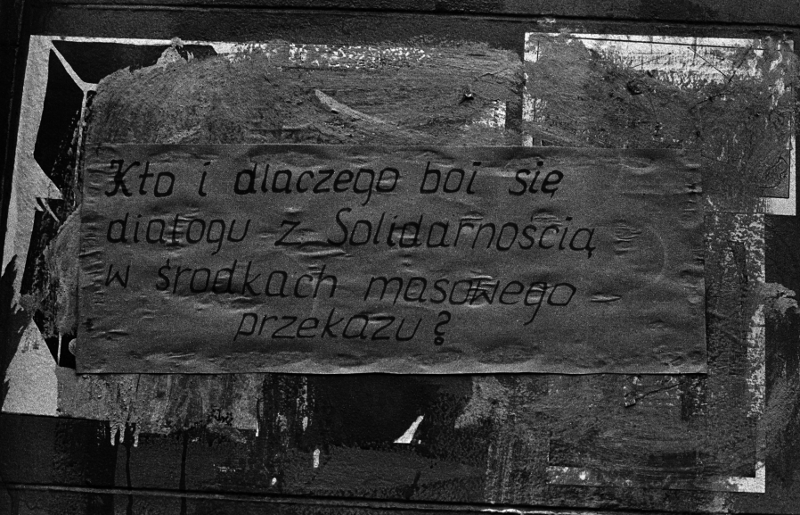 Kto i dlaczego boi się
dialogu z Solidarnością
w środkach masowego –
przekazu?